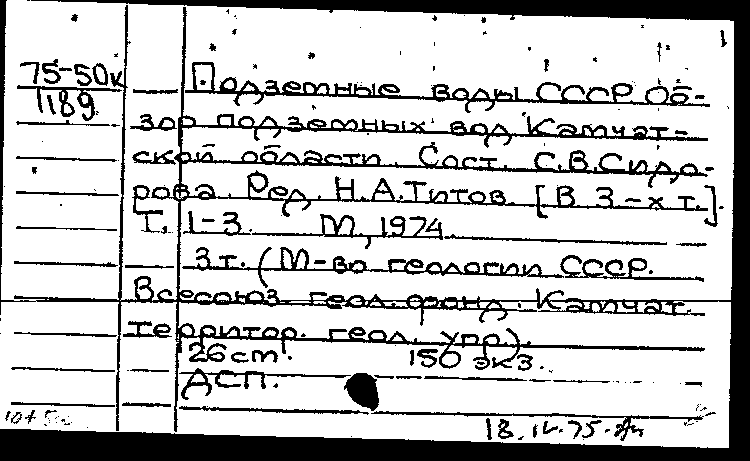 75-50к
1189
Подземные воды СССР Об-
зор подземных вод Камчат-
ской области. Сост. С.В.Сидо-
рова. Ред. Н.А.Титов. [В 3-х т.].
Т. 1-3 М, 1974
3т. (М-во геологии СССР.
Всесоюз. геол. фонд. Камчат.
территор. геол. упр).
26 cm. 150 экз.
ДСП.
18.IV-75.